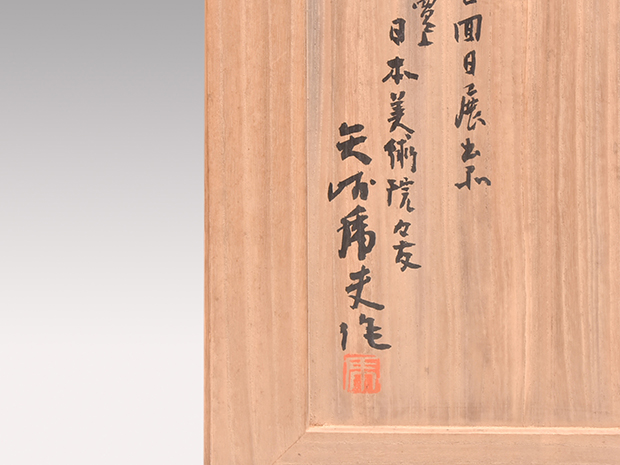 回日展出品
日本美術院々友
矢崎虎夫作
虎